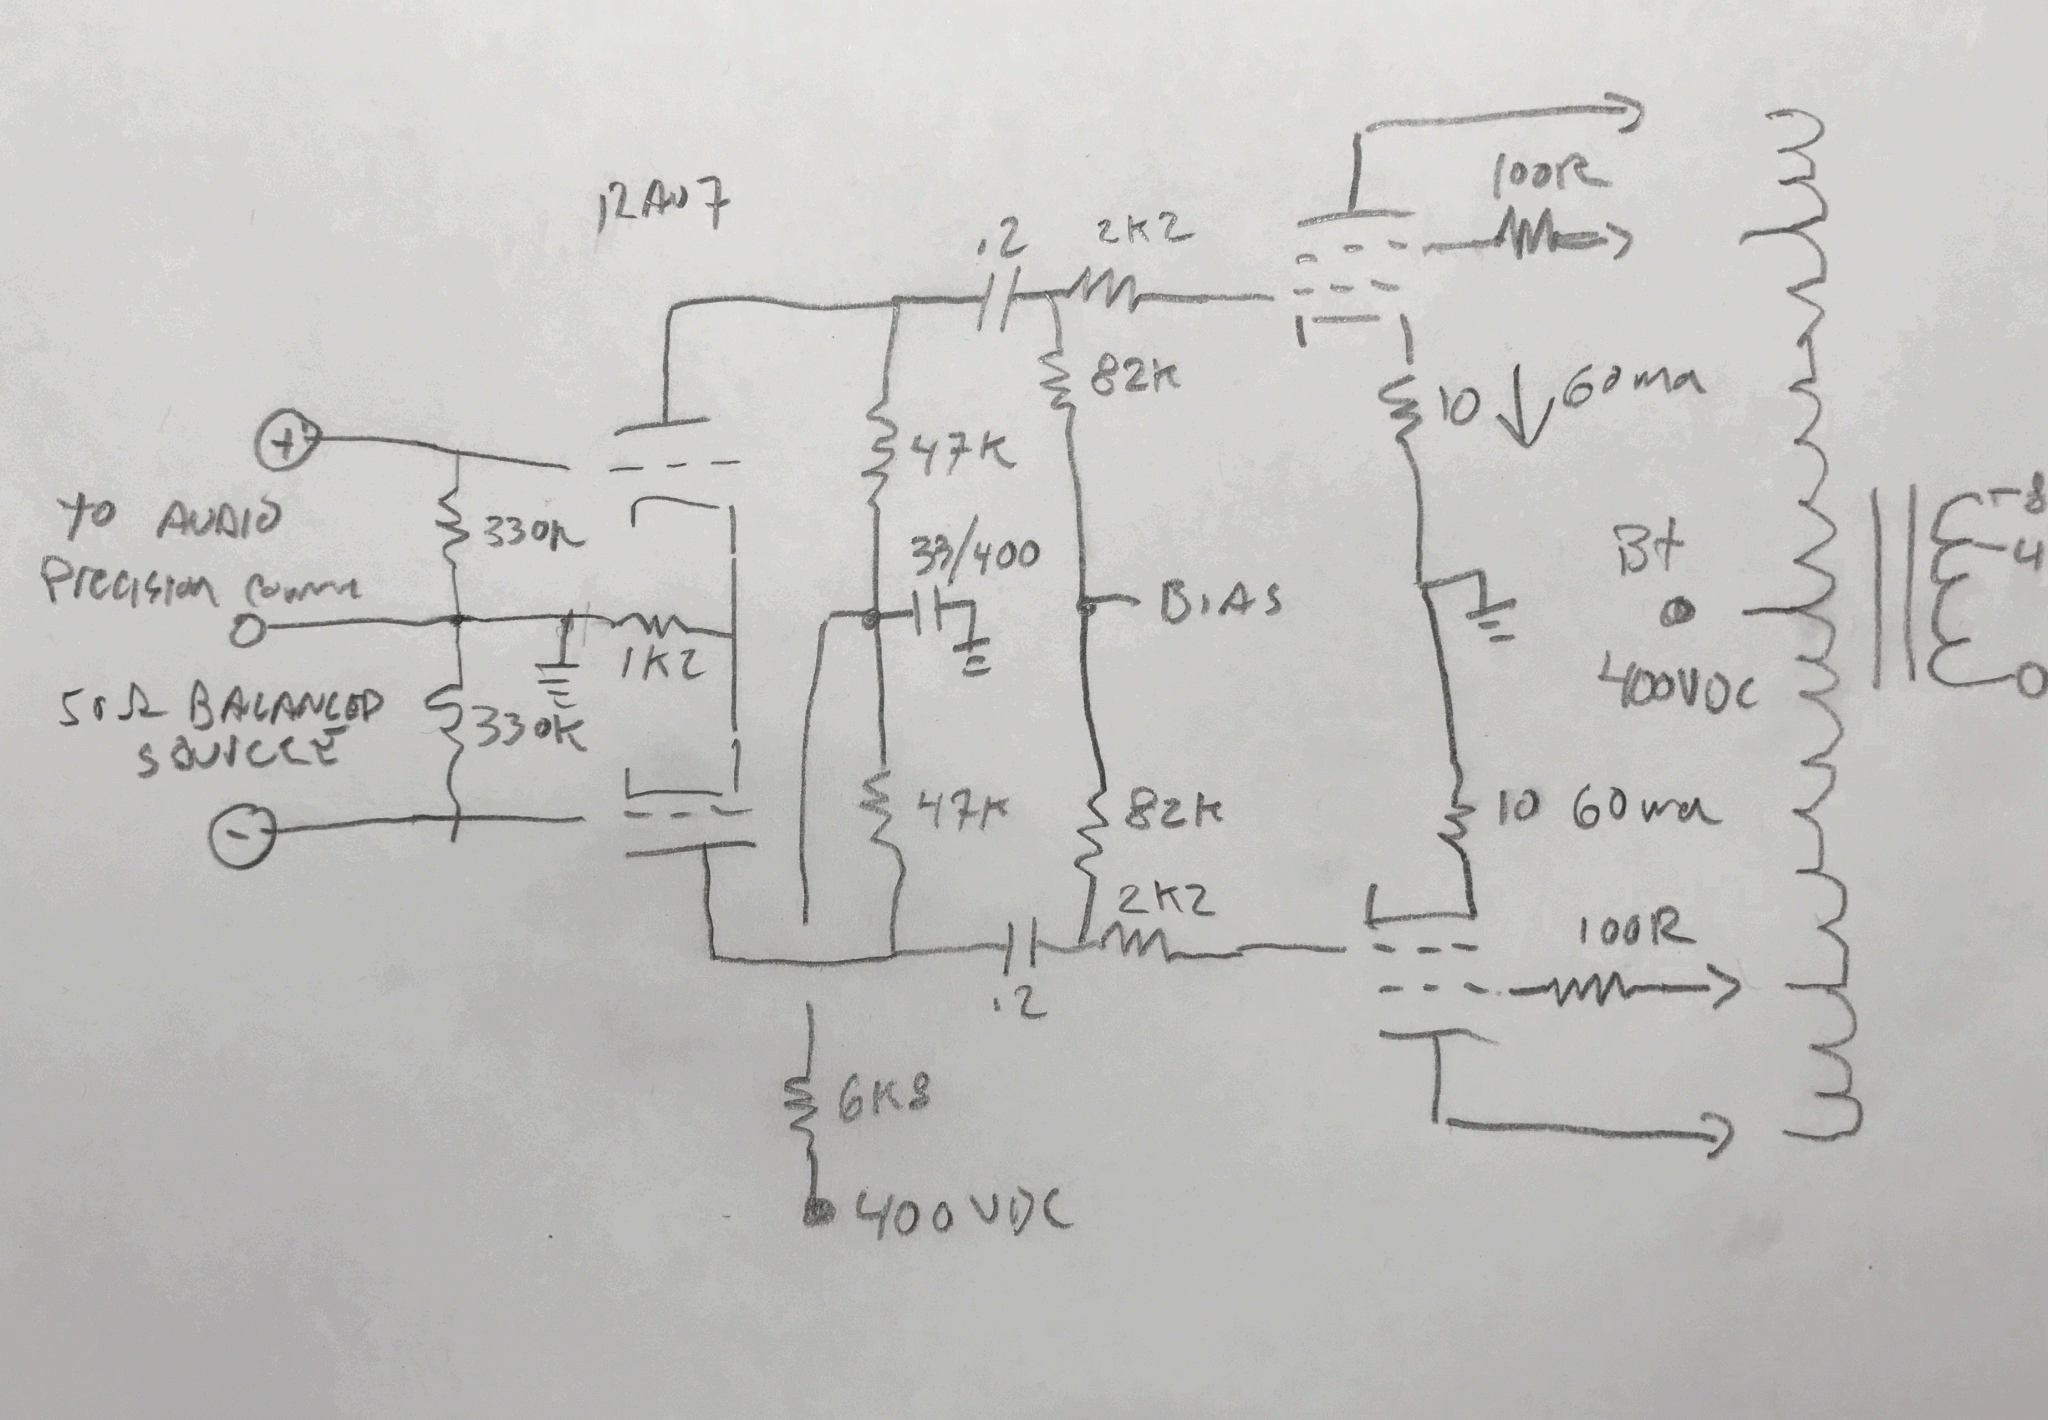 12AU7
.2
2K2
100R
+
82K
10
60ma
47K
TO AUDIO
330K
PRECISION
33/400
B+
8
4
BIAS
1K2
50Ω BALANCED
SOURCE
330K
400VDC
0
-
47K
82K
10 60ma
2K2
100R
.2
6K8
400VDC